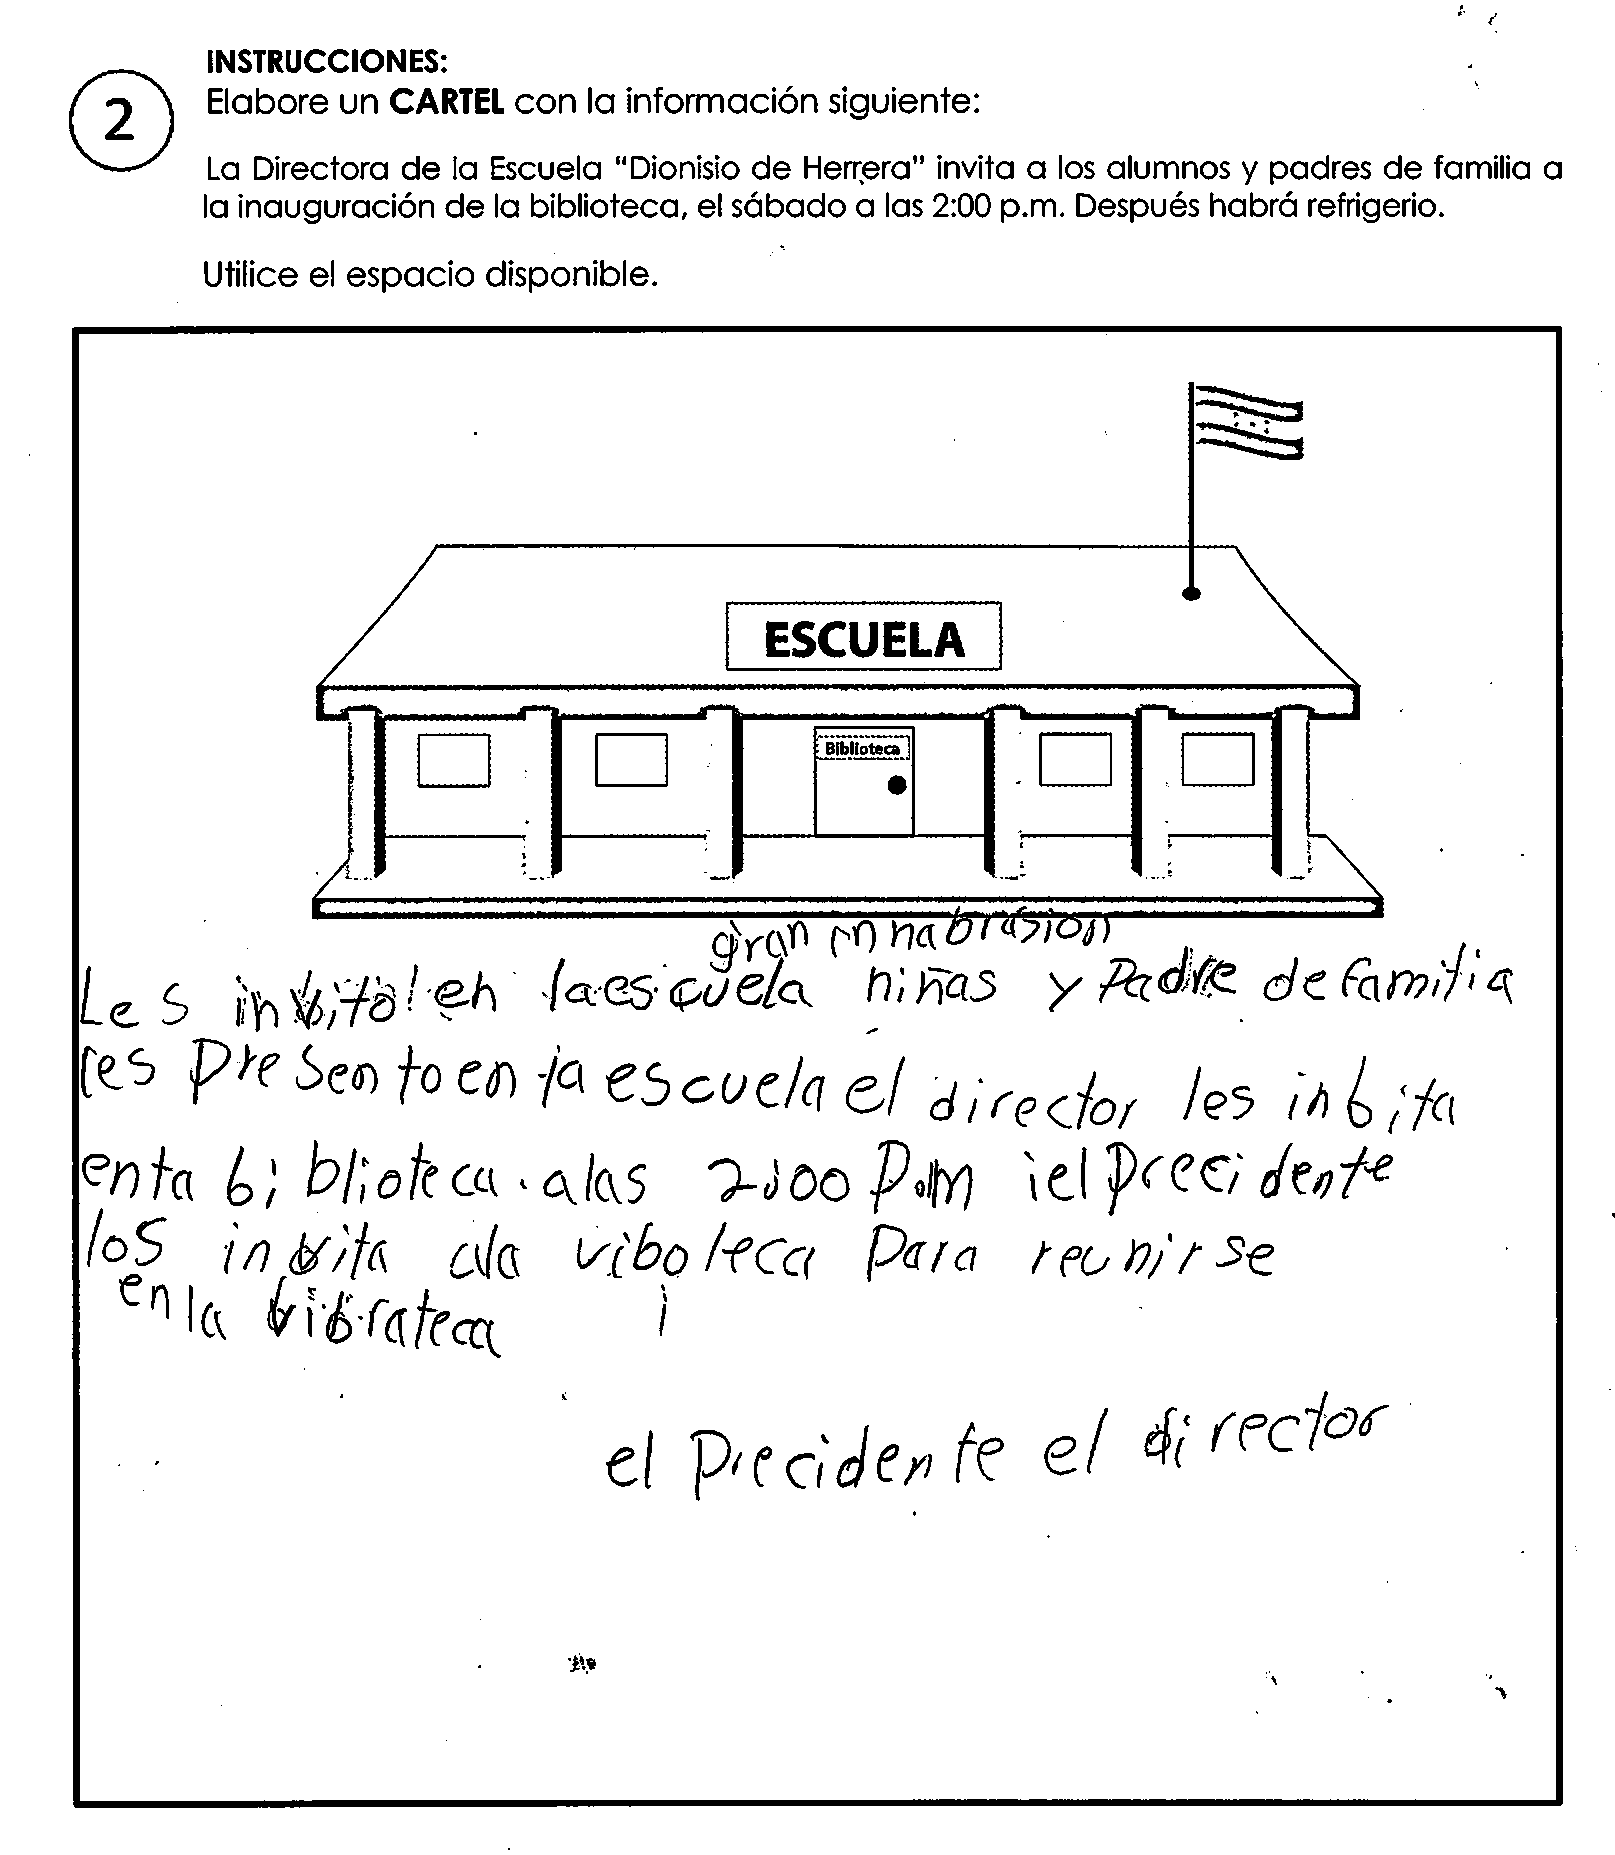 INSTRUCCIONES:
2
Elabore un CARTEL con la información siguiente:
La Directora de la Escuela "Dionisio de Herrera" invita a los alumnos y padres de familia a
la inauguración de la biblioteca, el sábado a las 2:00 p.m. Después habrá refrigerio.
Utilice el espacio disponible.
ESCUELA
Biblioteca
gran innabrasion
Les invito en la escuela niñas y Padre de familia
les Presento en la escuela el director les inbita
en la biblioteca. a las 2:00 P.m i el Precidente
los invita ala viboteca Para reunirse
en la vibrateca i
el Precidente el director